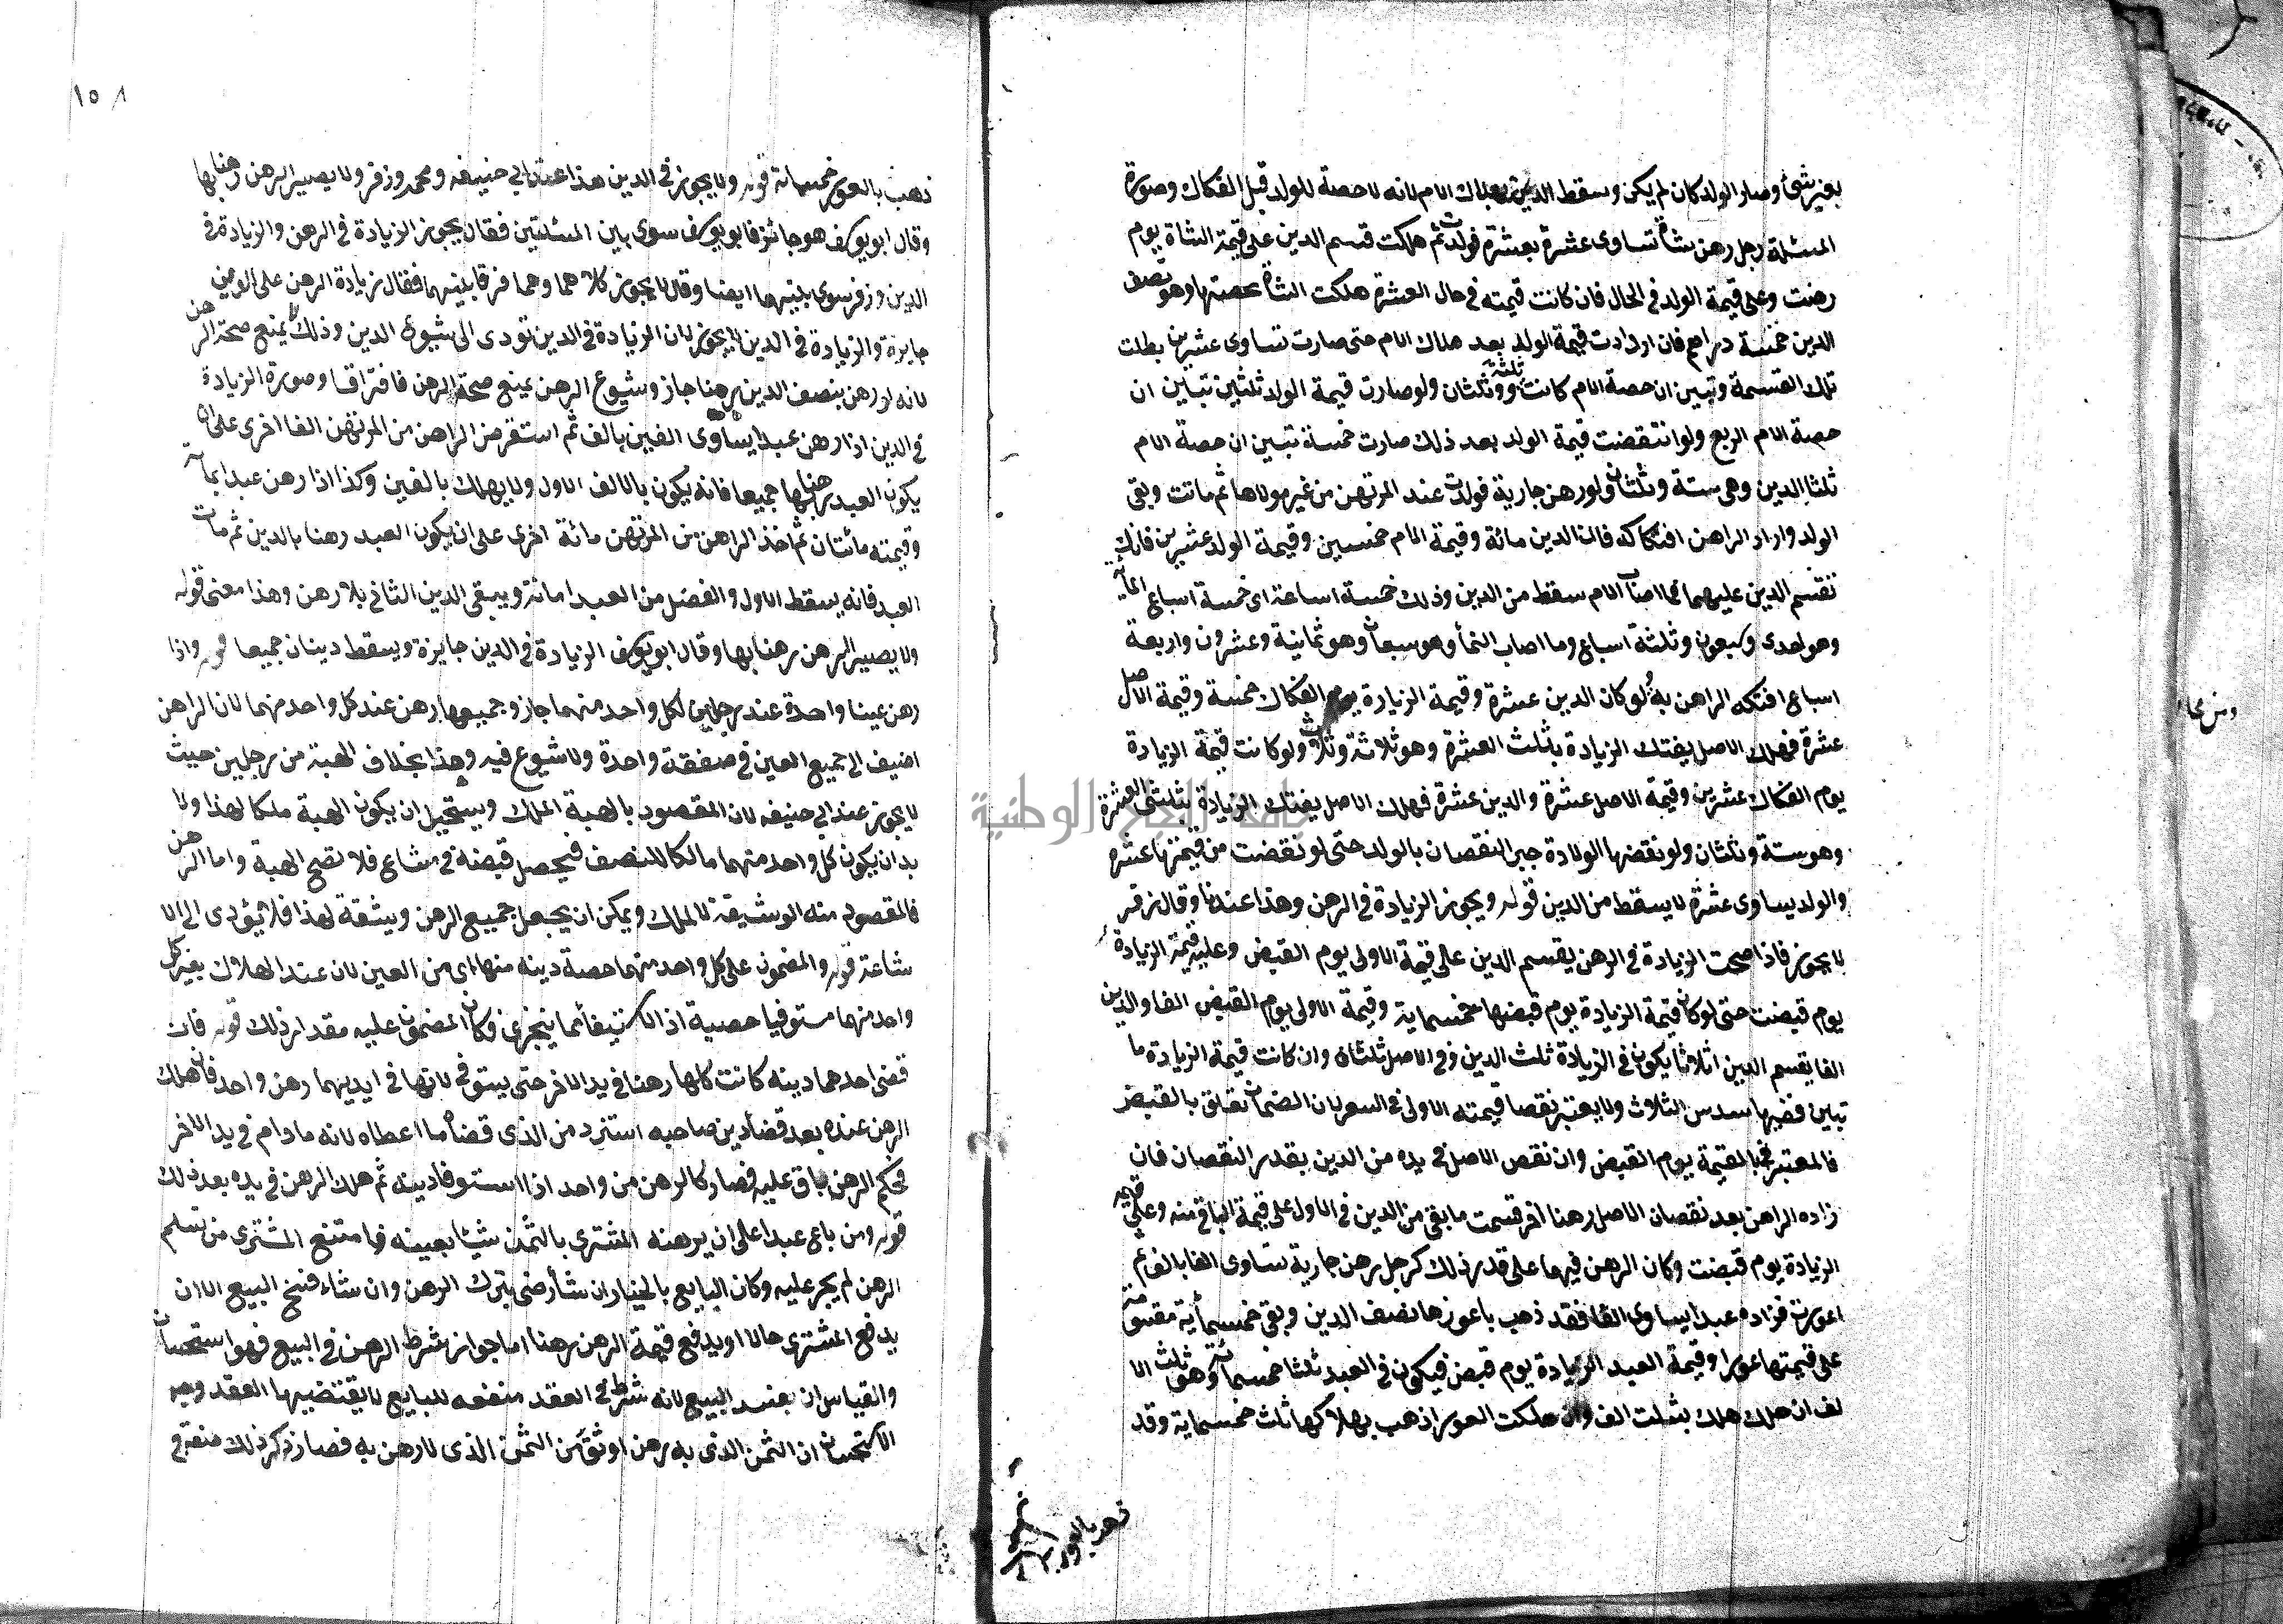 بغير شئ وصار الولد كان لم يكن وسقط الدين بهلاك الام لانه لا حصة للولد قبل الفكاك وصورة
المسئلة رجل رهن شاة تساوى عشرة بعشرة فولدت ثم هلكت قسم الدين على قيمة الشاة يوم
رهنت وعلى قيمة الولد فى الحال فان كانت قيمته فى حال العشرة هلكت الشاة بحصتها وهو نصف
الدين خمسة دراهم فان ازدادت قيمة الولد بعد هلاك الام حتى صارت تساوى عشرين بطلت
تلك القسمة وتبين ان حصة الام كانت ثلثة وثلثان ولو صارت قيمة الولد ثلثين تبين ان
حصة الام الربع ولو انتقضت قيمة الولد بعد ذلك صارت خمسة تبين ان حصة الام
ثلثا الدين وهى ستة وثلثان ولو رهن جارية فولدت عند المرتهن من غير مولاها ثم ماتت وبقى
الولد واراد الراهن افتكاكه فان الدين مائة وقيمة الام خمسين وقيمة الولد عشرين فانك
تقسم الدين عليهما فما اصاب الام سقط من الدين وذلك خمسة اسباعه اى خمسة اسباع المأية
وهو احدى وسبعون وثلثة اسباع وما اصاب النمأ وهو سبعان وهو ثمانية وعشرون واربعة
اسباع افتكه الراهن به ولو كان الدين عشرة وقيمة الزيادة يوم الفكاك خمسة وقيمة الاصل
عشرة فهلك الاصل يفتك الزيادة بثلث العشرة وهو ثلاثة وثلاث ولو كانت قيمة الزيادة
يوم الفكاك عشرين وقيمة الاصل عشرة والدين عشرة فهلك الاصل يفتك الزيادة بثلثى العشرة
وهو ستة وثلثان ولو نقضها الولادة جبر النقصان بالولد حتى لو نقضت من قيمتها عشرة
والولد يساوى عشرة لا يسقط من الدين قوله ويجوز الزيادة فى الرهن وهذا عندنا وقال زفر
لا يجوز فاذا صحت الزيادة فى الرهن يقسم الدين على قيمة الاولى يوم القبض وعلى قيمة الزيادة
يوم قبضت حتى لو كان قيمة الزيادة يوم قبضها خمسماية وقيمة الاولى يوم القبض الفا والدين
الفا يقسم الدين اثلاثا يكون فى الزيادة ثلث الدين وفى الاصل ثلثان وان كانت قيمة الزيادة ما
تبين ففيها سدس الثلاث ولا يعتبر نقصا قيمته الاولى فى السعر لان الضمان تعلق بالقبض
فالمعتبر فى القيمة يوم القبض وان نقص الاصل فى يده من الدين بقدر النقصان فان
زاده الراهن بعد نقصان الاصل رهنا اخر قسمت ما بقى من الدين فى الاول على قيمة الباقى منه وعلى قيمة
الزيادة يوم قبضت وكان الرهن فيهما على قدر ذلك كرجل رهن جارية تساوى الفا بالف ثم
اعورت فزاده عبدا يساوى الفا فقد ذهب باعورها نصف الدين وبقى خمسمأية مقسومة
على قيمتها عورا وقيمة العبد الزيادة يوم قبض فيكون فى العبد ثلثا خمسمائة وهو ثلث الا
لف ان هلك هلك بثلث الف وان هلكت العورا ذهب بهلاكها ثلث خمسماية وقد
ذهب بالعور
١٥٨
ذهب بالعور خمسمائة قوله ولا يجوز فى الدين هذا عند ابى حنيفه ومحمد وزفر ولا يصير الرهن رهنا بها
وقال ابو يوسف هو جائز فابو يوسف سوى بين المسئلتين فقال يجوز الزيادة فى الرهن والزيادة فى
الدين وزفر سوى بينهما ايضا وقال لا يجوز كلاهما وهما فرقا بينهما فقال زيادة الرهن على الدين
جايزة والزيادة فى الدين لا يجوز لان الزيادة فى الدين تودى الى شيوع الدين وذلك لا يمنع صحة الرهن
لانه لو رهن بنصف الدين رهنا جاز وشيوع الرهن يمنع صحة الرهن فافترقا وصورة الزيادة
فى الدين اذا رهن عبدا يساوى الفين بالف ثم استقرض الراهن من المرتهن الفا اخرى على ان
يكون العبد رهنا بها جميعا فانه يكون بالالف الاول ولا يهلك بالفين وكذا اذا رهن عبدا بمأة
وقيمته مائتان ثم اخذ الراهن من المرتهن مائة اخرى على ان يكون العبد رهنا بالدين ثم مات
العبد فانه يسقط الاول والفضل من العبد امانة ويبقى الدين الثانى بلا رهن وهذا معنى قوله
ولا يصير الرهن رهنا بها وقال ابو يوسف الزيادة فى الدين جايزة ويسقط دينان جميعا قوله واذا
رهن عينا واحدة عند رجلين لكل واحد منهما جاز وجميعها رهن عند كل واحد منهما لان الراهن
اضيف الى جميع العين فى صفقة واحدة ولا شيوع فيه وهذا بخلاف الهبة من رجلين حيث
لا يجوز عند ابى حنيفه لان المقصود بالهبة الملك ويستحيل ان يكون الهبة ملكا لهذا ولا
بد ان يكون كل واحد منهما مالكا للنصف فيحصل قبضه فى مشاع فلا تصح الهبة واما الرهن
فالمقصود منه الوشيقة لا الملك ويمكن ان يجعل جميع الرهن وثيقة لهذا فلا يؤدى الى الا
شاعة قوله والمضمون على كل واحد منهما حصة دينه منها اى من العين لان عند الهلاك يغير كل
واحد منهما مستوفيا حصية اذ الاستيفأ مما يتجزى فكان المضمون عليه مقدار ذلك قوله فان
قضى احدهما دينه كانت كلها رهنا فى يد الاخر حتى يستوفى لانها فى ايديهما رهن واحد فان هلك
الرهن عنده بعد قضأ دين صاحبه استرد من الذى قضأه ما اعطاه لانه ما دام فى يد الاخر
فحكم الرهن باق عليه فصار كالرهن من واحد اذا استوفا دينه ثم هلك الرهن فى يده بعد ذلك
قوله ومن باع عبدا على ان يرهنه المشترى بالثمن شيئا بعينه فامتنع المشترى من تسلم
الرهن لم يجبر عليه وكان البايع بالخيار ان شأ رضى بترك الرهن وان شاء فسخ البيع الا ان
يدفع المشترى حالا او يدفع قيمة الرهن رهنا اما جواز شرط الرهن فى البيع فهو استحسان
والقياس ان يفسد البيع لانه شرط فى العقد منفعه للبايع لا يقتضيها العقد وجه
الاستحسان ان الثمن الذى به رهن اوثق من الثمن الذى لا رهن به فصار ذكر ذلك صفة فى
جامعة النجاح الوطنية